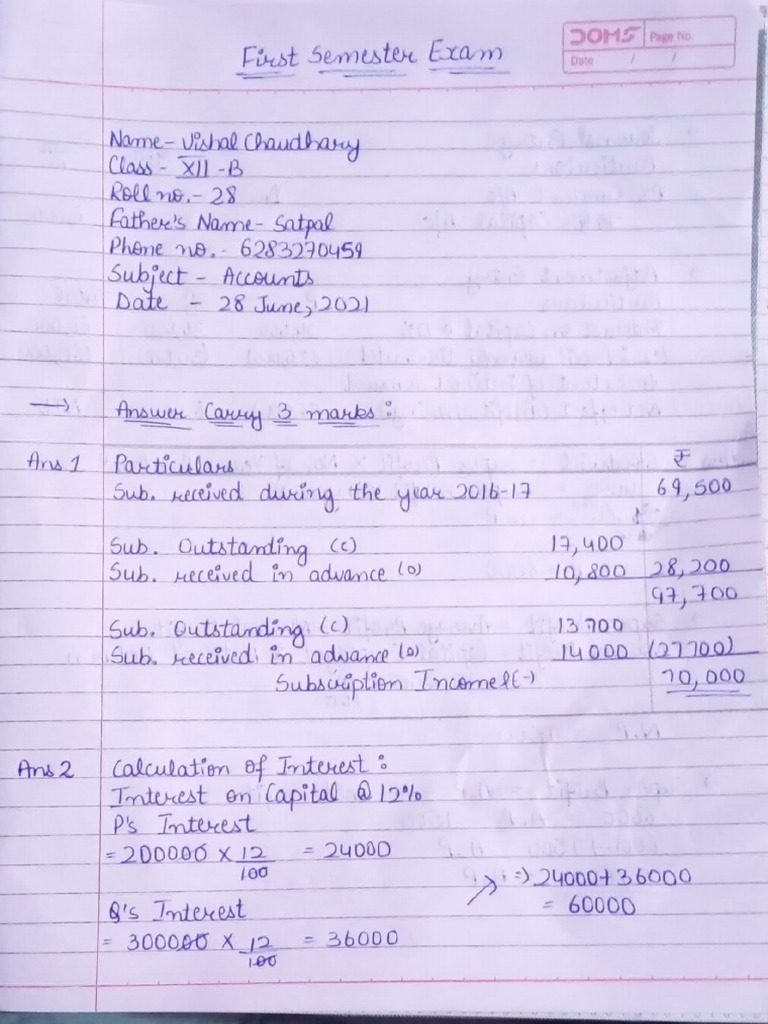 First Semester Exam
DOMS Page No.
Date / /
Name - Vishal Chaudhary
Class - XII - B
Roll no. - 28
Father's Name - Satpal
Phone no. - 6283270459
Subject - Accounts
Date - 28 June, 2021
→ Answer Carry 3 marks :
Ans 1 Particulars ₹
Sub. received during the year 2016-17 69,500
Sub. Outstanding (c) 17,400
Sub. received in advance (o) 10,800 28,200
97,700
Sub. Outstanding (c) 13700
Sub. received in advance (o) 14000 (27700)
Subscription Income (-) 70,000
Ans 2 Calculation of Interest :
Interest on Capital @ 12%
P's Interest
= 200000 × 12/100 = 24000
⇒ 24000 + 36000
= 60000
Q's Interest
= 300000 × 12/100 = 36000